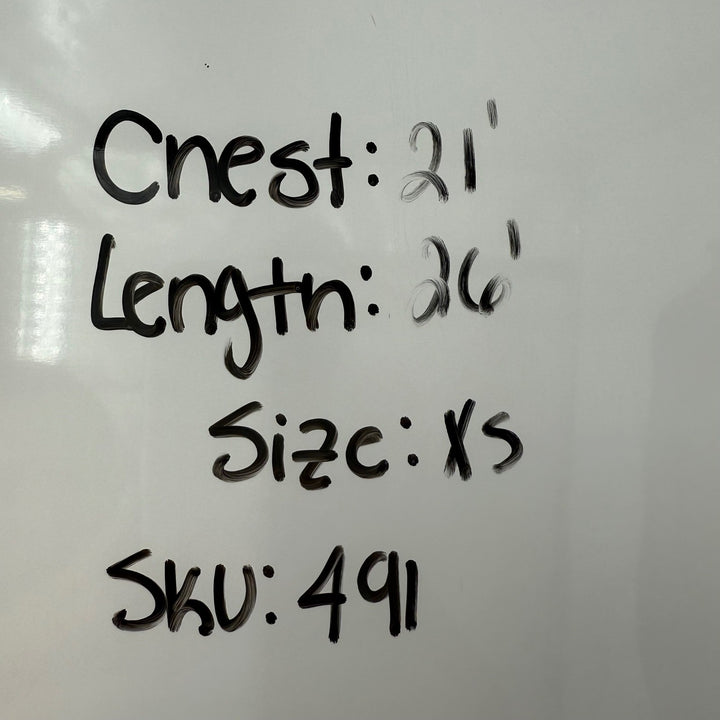 Chest: 21'
Length: 26'
Size: XS
SKU: 491